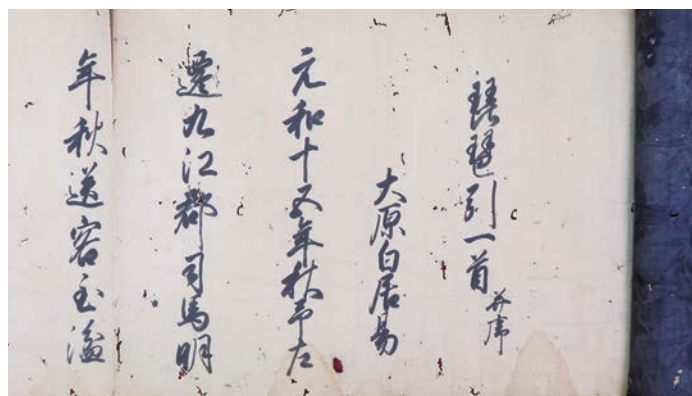 琵琶引一首 并序
大原白居易
元和十五年秋予左
遷九江郡司馬明
年秋送客至湓